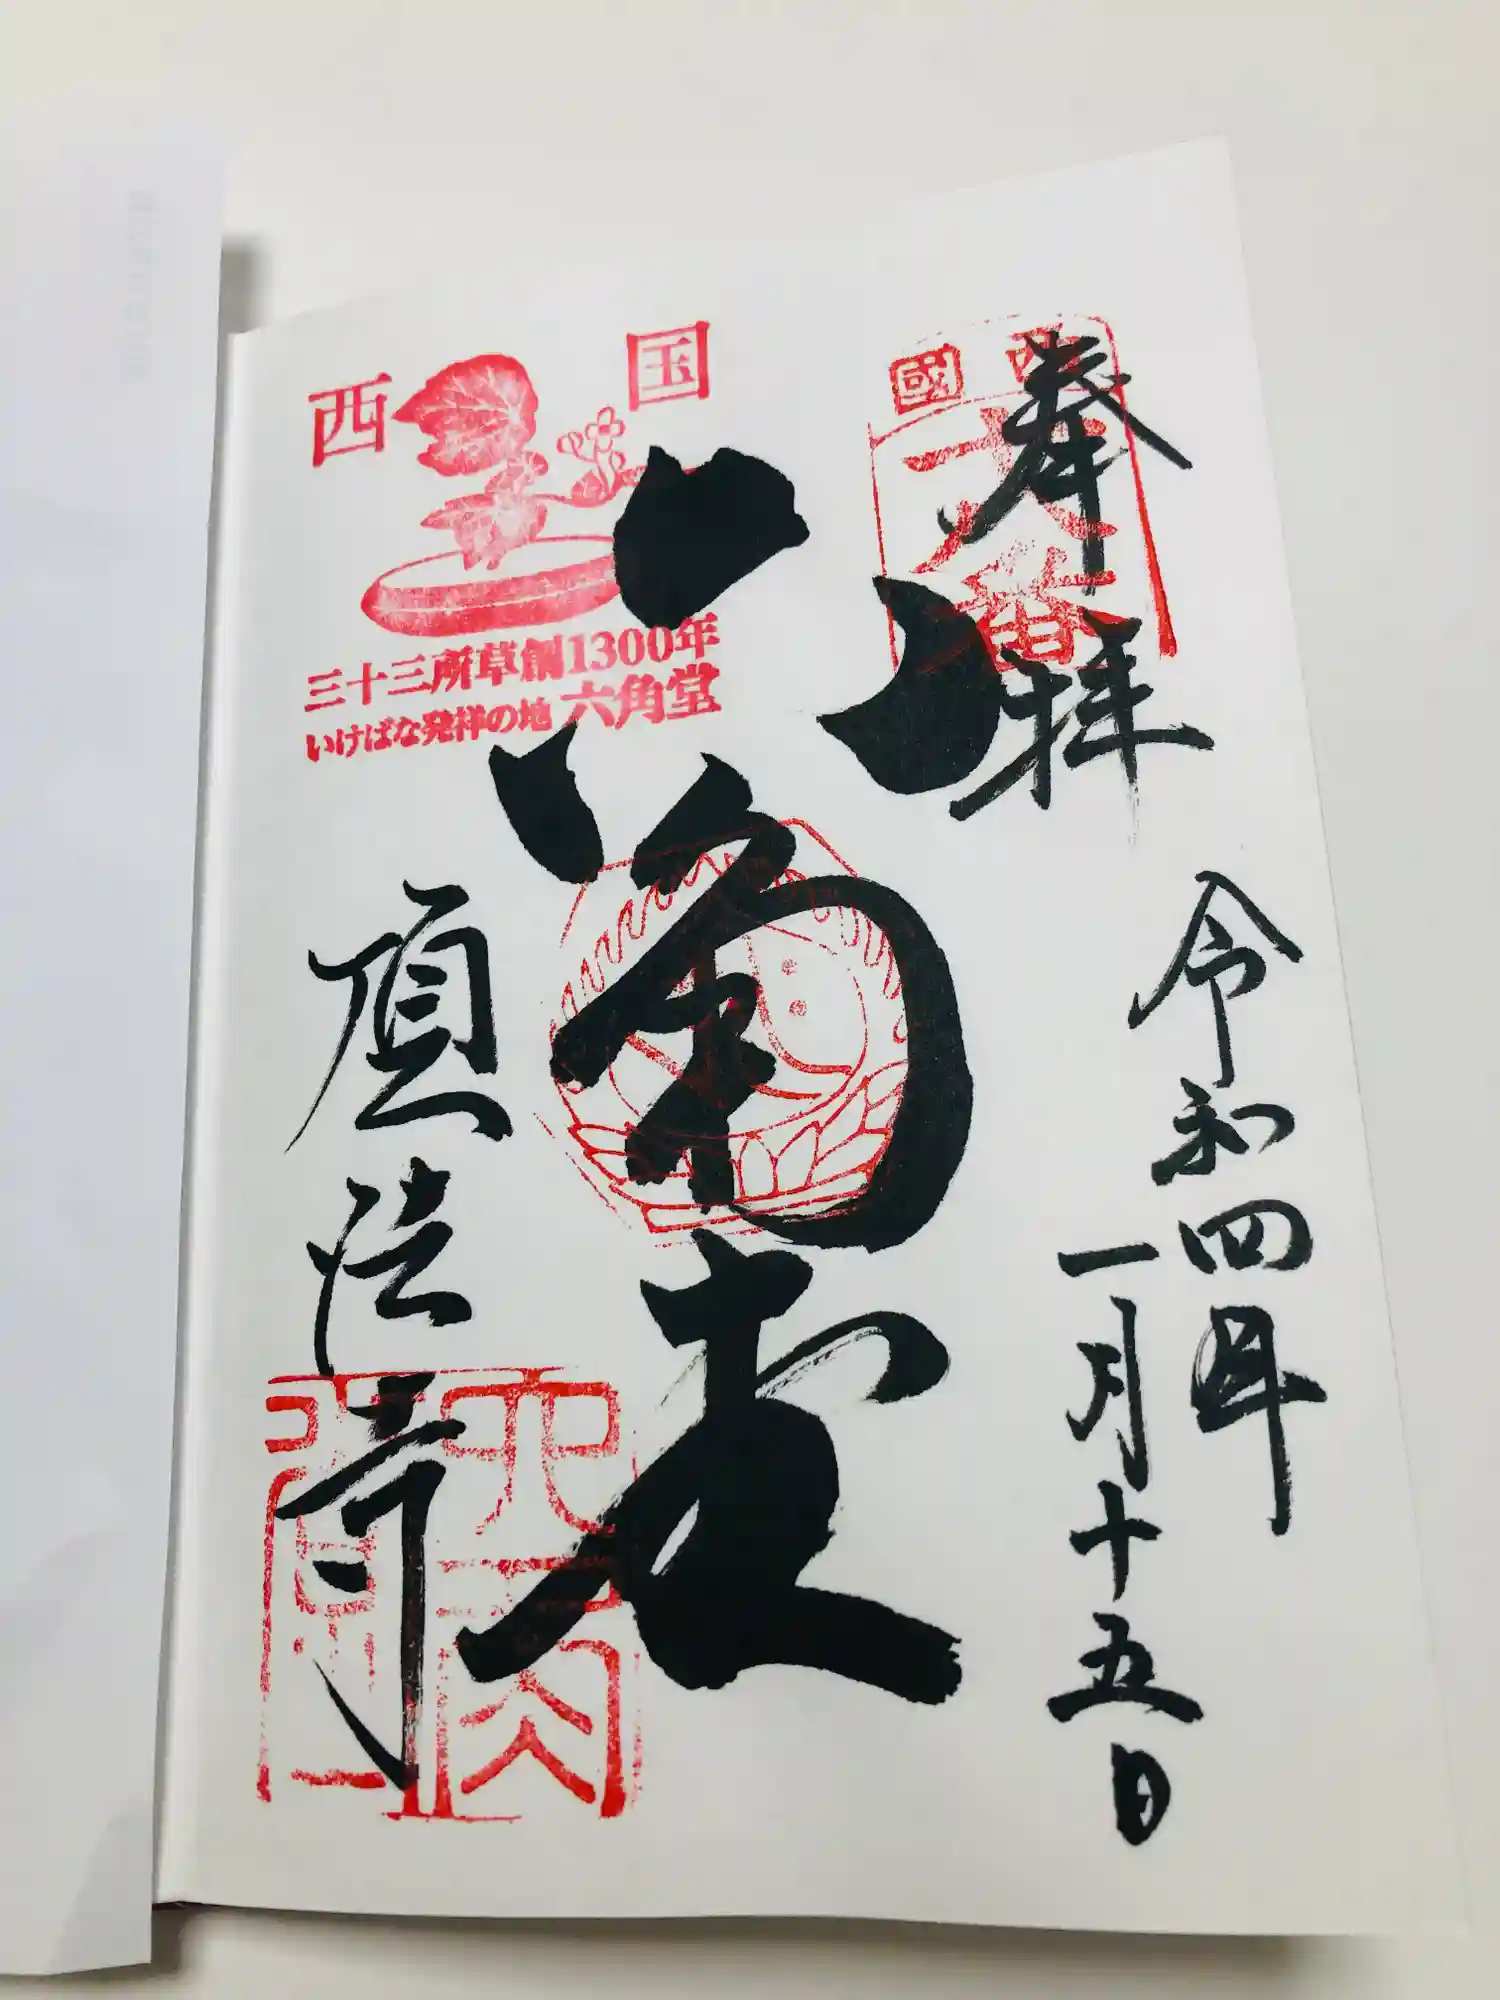 奉拝
西國
十八番
令和四年
一月十五日
六角堂
西国
三十三所草創1300年
いけばな発祥の地 六角堂
頂法寺